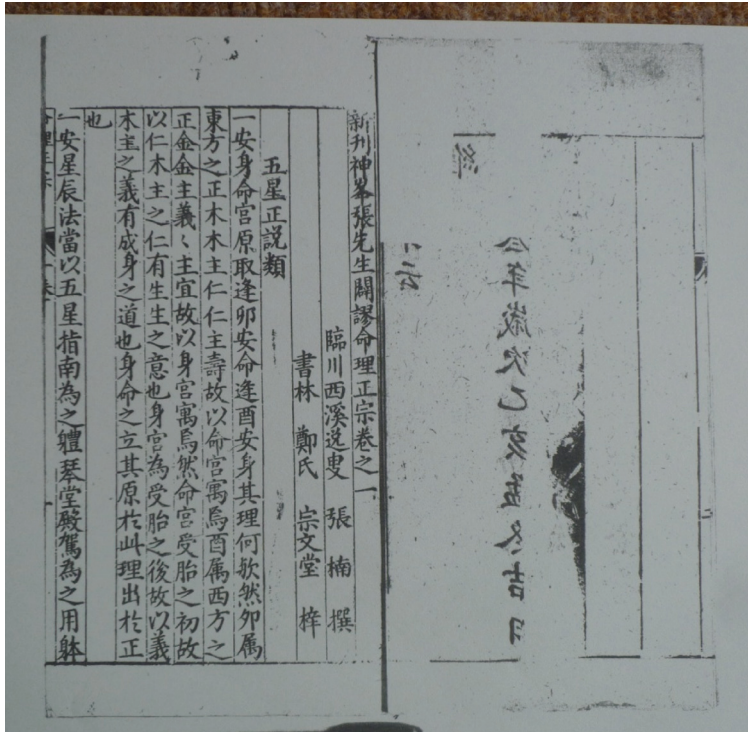 新刋神峯張先生闢謬命理正宗卷之一
臨川西溪逸叟　張楠　撰
書林　鄭氏　宗文堂　梓
五星正説類
一安身命宮原取逢卯安命逢酉安身其理何欤然卯属
東方之正木木主仁仁主壽故以命宮寓焉酉属西方之
正金金主義〻主宜故以身宮寓焉然命宮受胎之初故
以仁木主之仁有生生之意也身宮為受胎之後故以義
木主之義有成身之道也身命之立其原於此理出於正
也
一安星辰法當以五星指南為之軆琴堂殿駕為之用躰